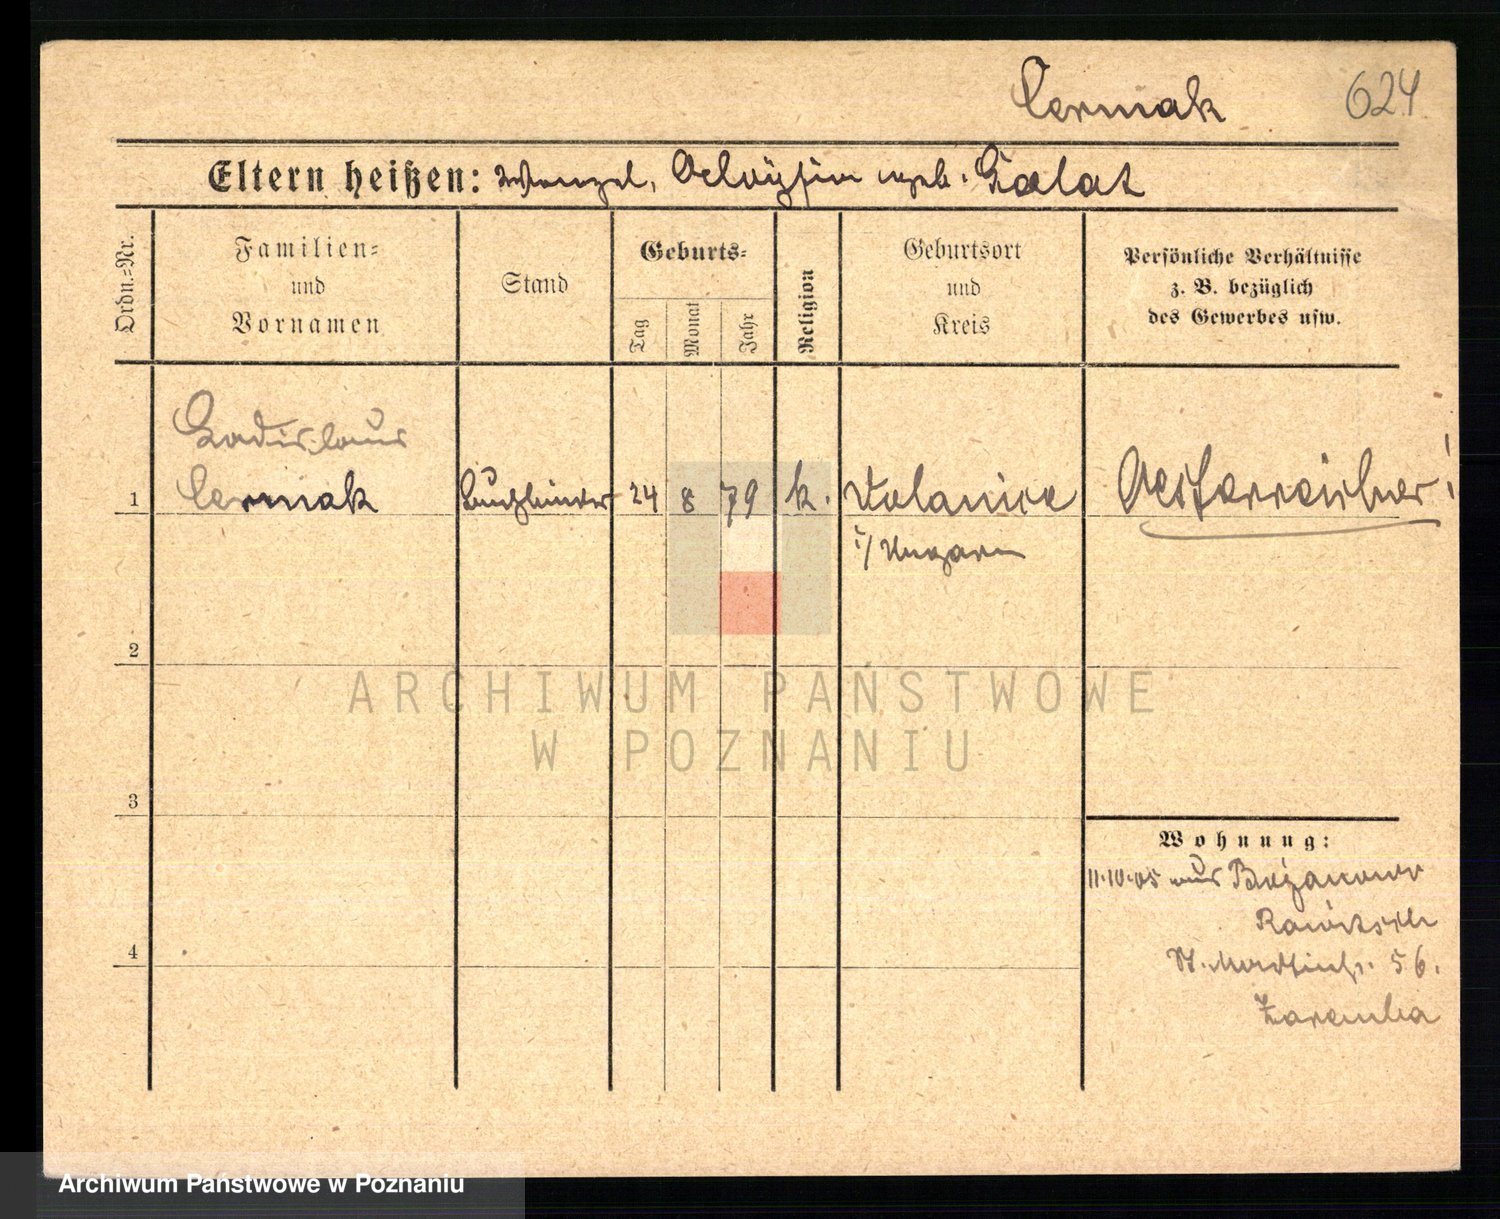 Cermak 624
Eltern heißen: Wenzel, Aloysia geb. Galat
Ordn.=Nr.
Familien=
und
Vornamen
Stand
Geburts=
Tag
Monat
Jahr
Religion
Geburtsort
und
Kreis
Persönliche Verhältnisse
z. B. bezüglich
des Gewerbes usw.
Ladislaus
1 Cermak Buchbinder 24 8 79 k. Oesterreicher!
i/ Ungarn
2
3
4
Wohnung:
11.10.05 aus
Rawitsch
St. Martinstr. 56.
Zaremba
ARCHIWUM PAŃSTWOWE
W POZNANIU
Archiwum Państwowe w Poznaniu